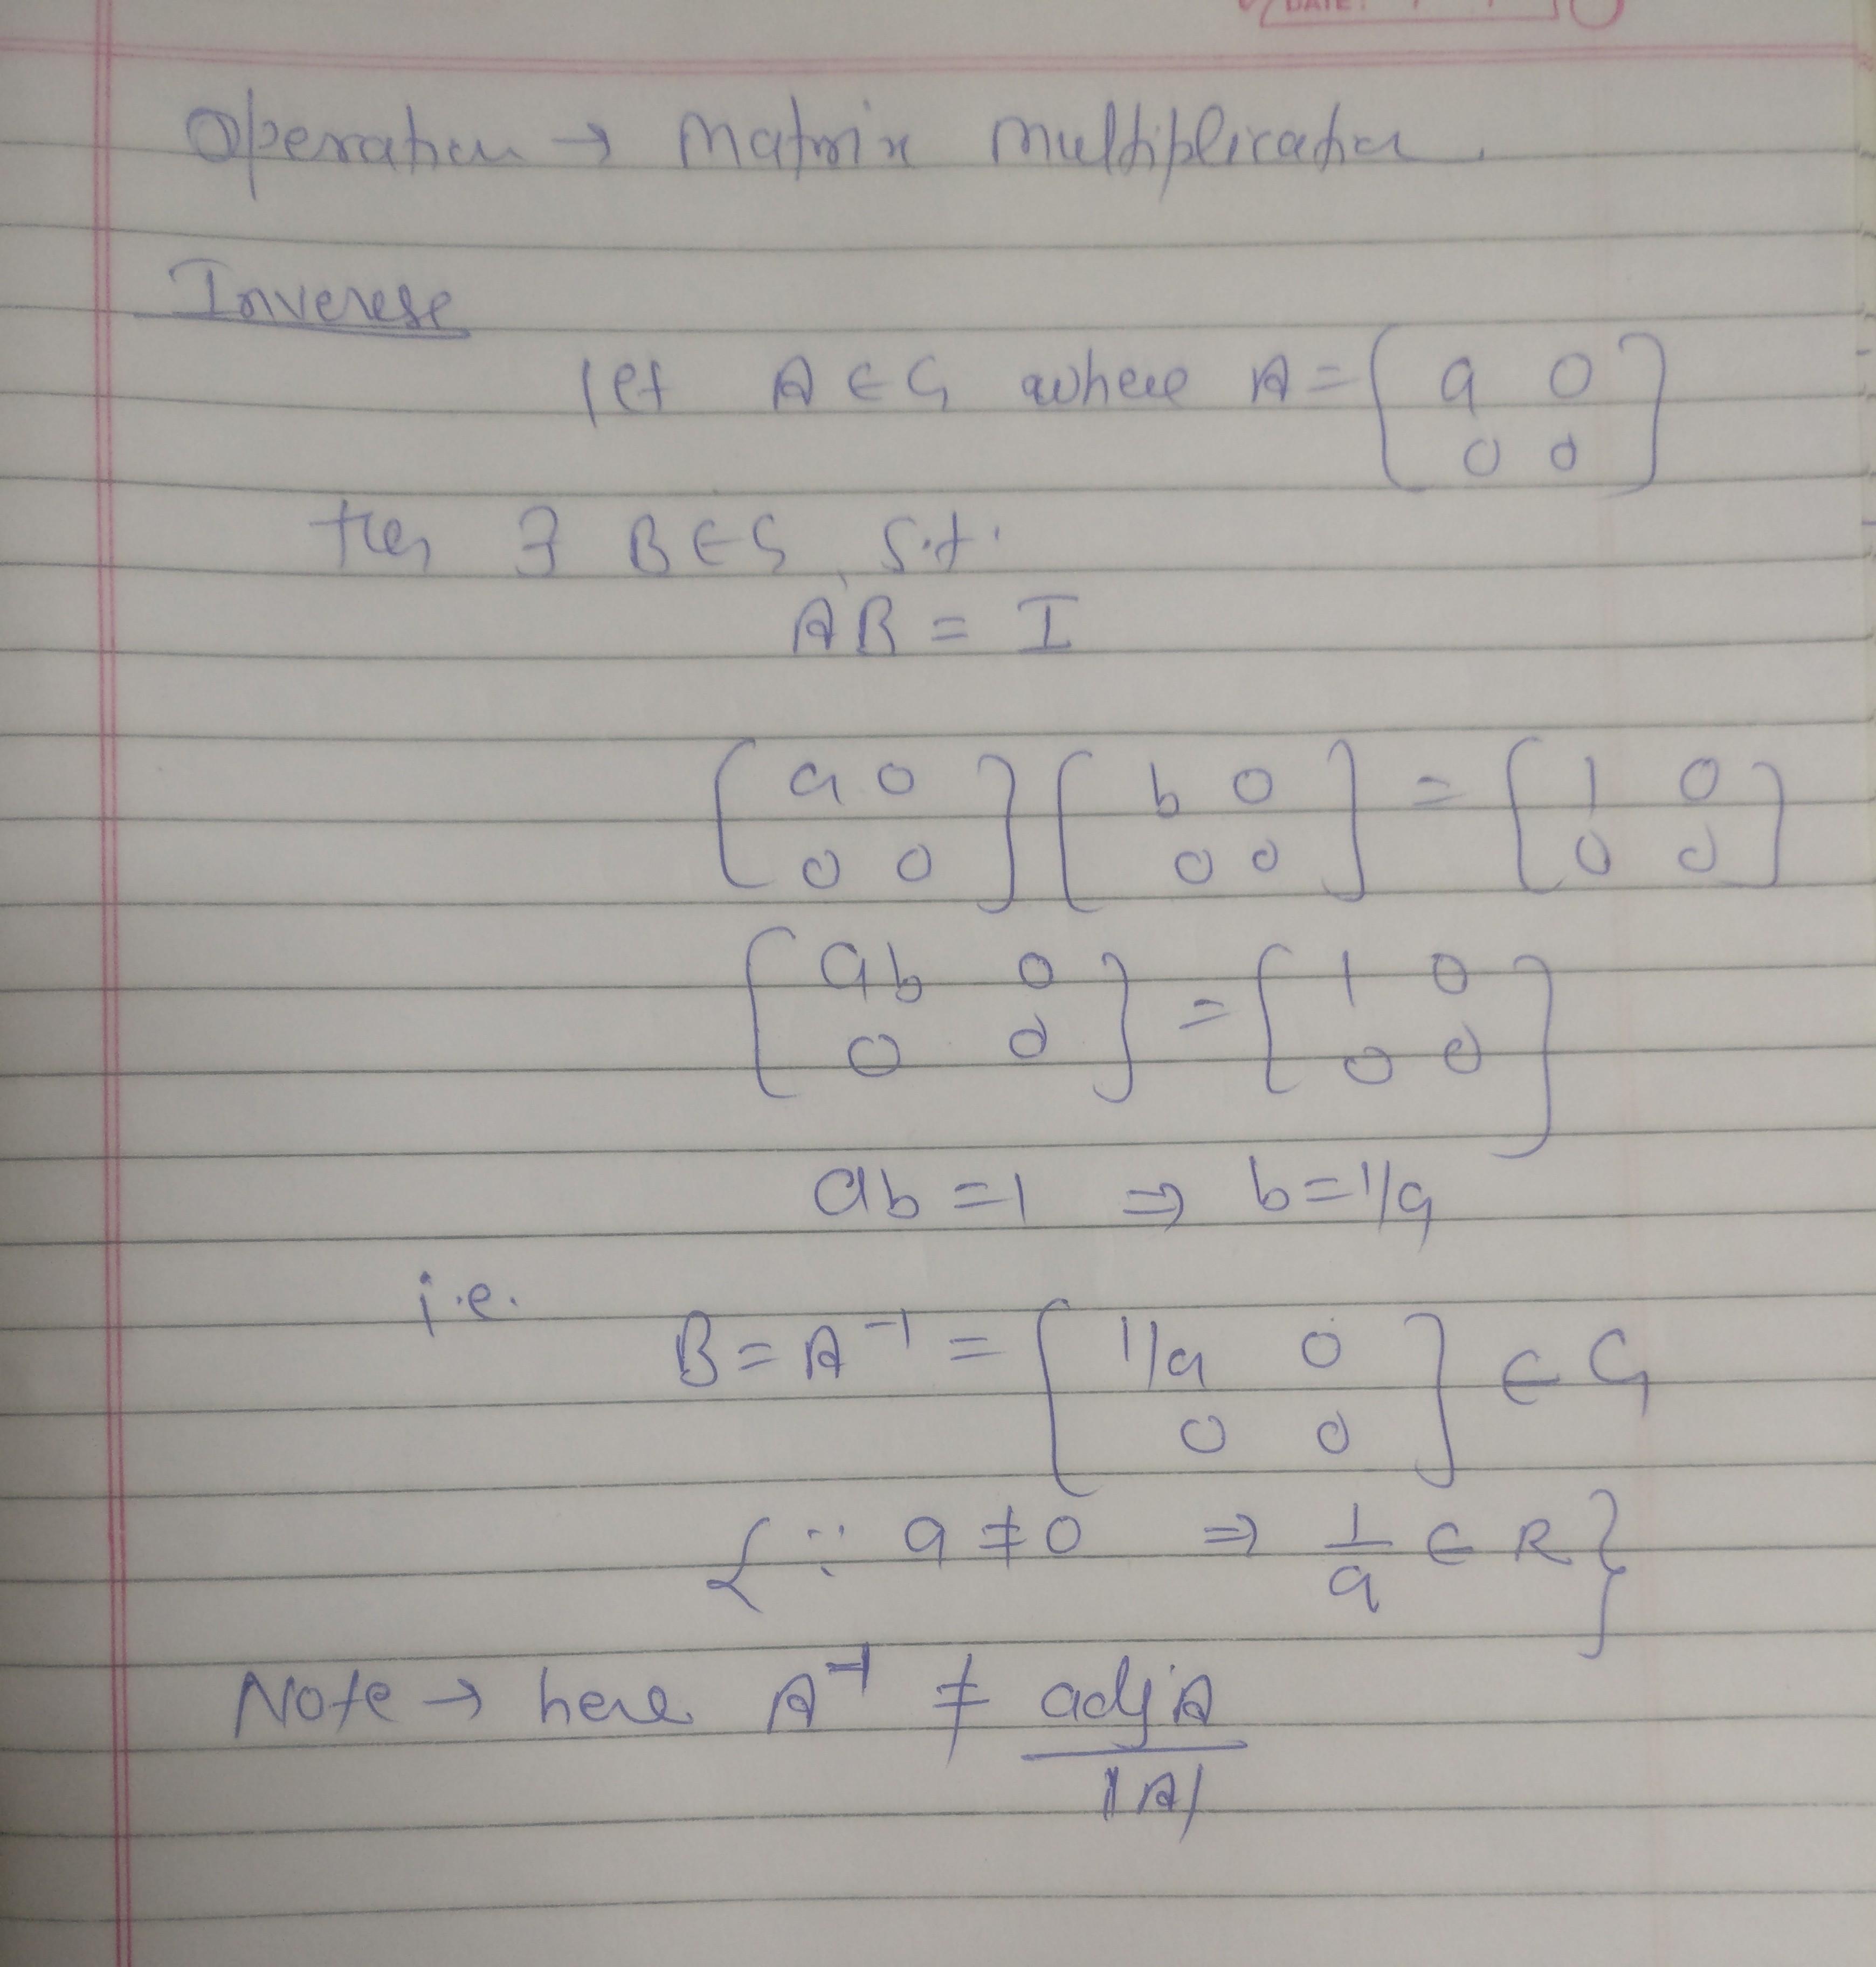 DATE:
Operation → Matrix multiplication.
Inverese
let A ∈ G where A = [a 0
0 0]
then ∃ B ∈ G, s.t.
AB = I
[a 0 ] [b 0 ] = [1 0
0 0] [0 0] [0 0]
[ab 0 ] = [1 0
0 0] [0 0]
ab = 1 ⇒ b = 1/a
i.e.
B = A⁻¹ = [1/a 0
0 0] ∈ G
{∵ a ≠ 0 ⇒ 1/a ∈ R}
Note → here A⁻¹ ≠ adj A
|A|